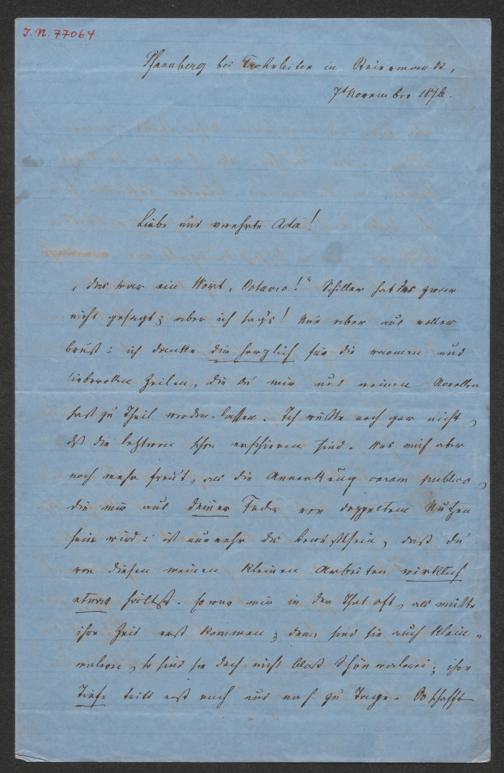 I. N. 77064
Pfannberg bei Frohnleiten in Steiermark,
7t November 1876.
Liebe und verehrte Ada!
„das war ein Wort, Octavio!" Schiller hat das zwar
nicht gesagt; aber ich sag's! Nun aber aus voller
Brust: ich danke dir herzlich für die warmen und
liebevollen Zeilen, die du mir und meinen Novellen
hast zu Theil werden lassen. Ich wußte noch gar nicht,
daß die letzteren schon erschienen sind. Was mich aber
noch mehr freut, als die Anerkennung coram publico,
die mir aus deiner Feder von doppeltem Nutzen
sein wird: ist nunmehr das Bewußtsein, daß du
von diesen meinen kleinen Arbeiten wirklich
etwas hältst. kommt mir in der That oft, als müßte
ihre Zeit erst kommen; denn sind sie auch Klein-
malerei, so sind sie doch nicht bloß Schönmalerei; ihre
Tiefe tritt erst nach und nach zu Tage.